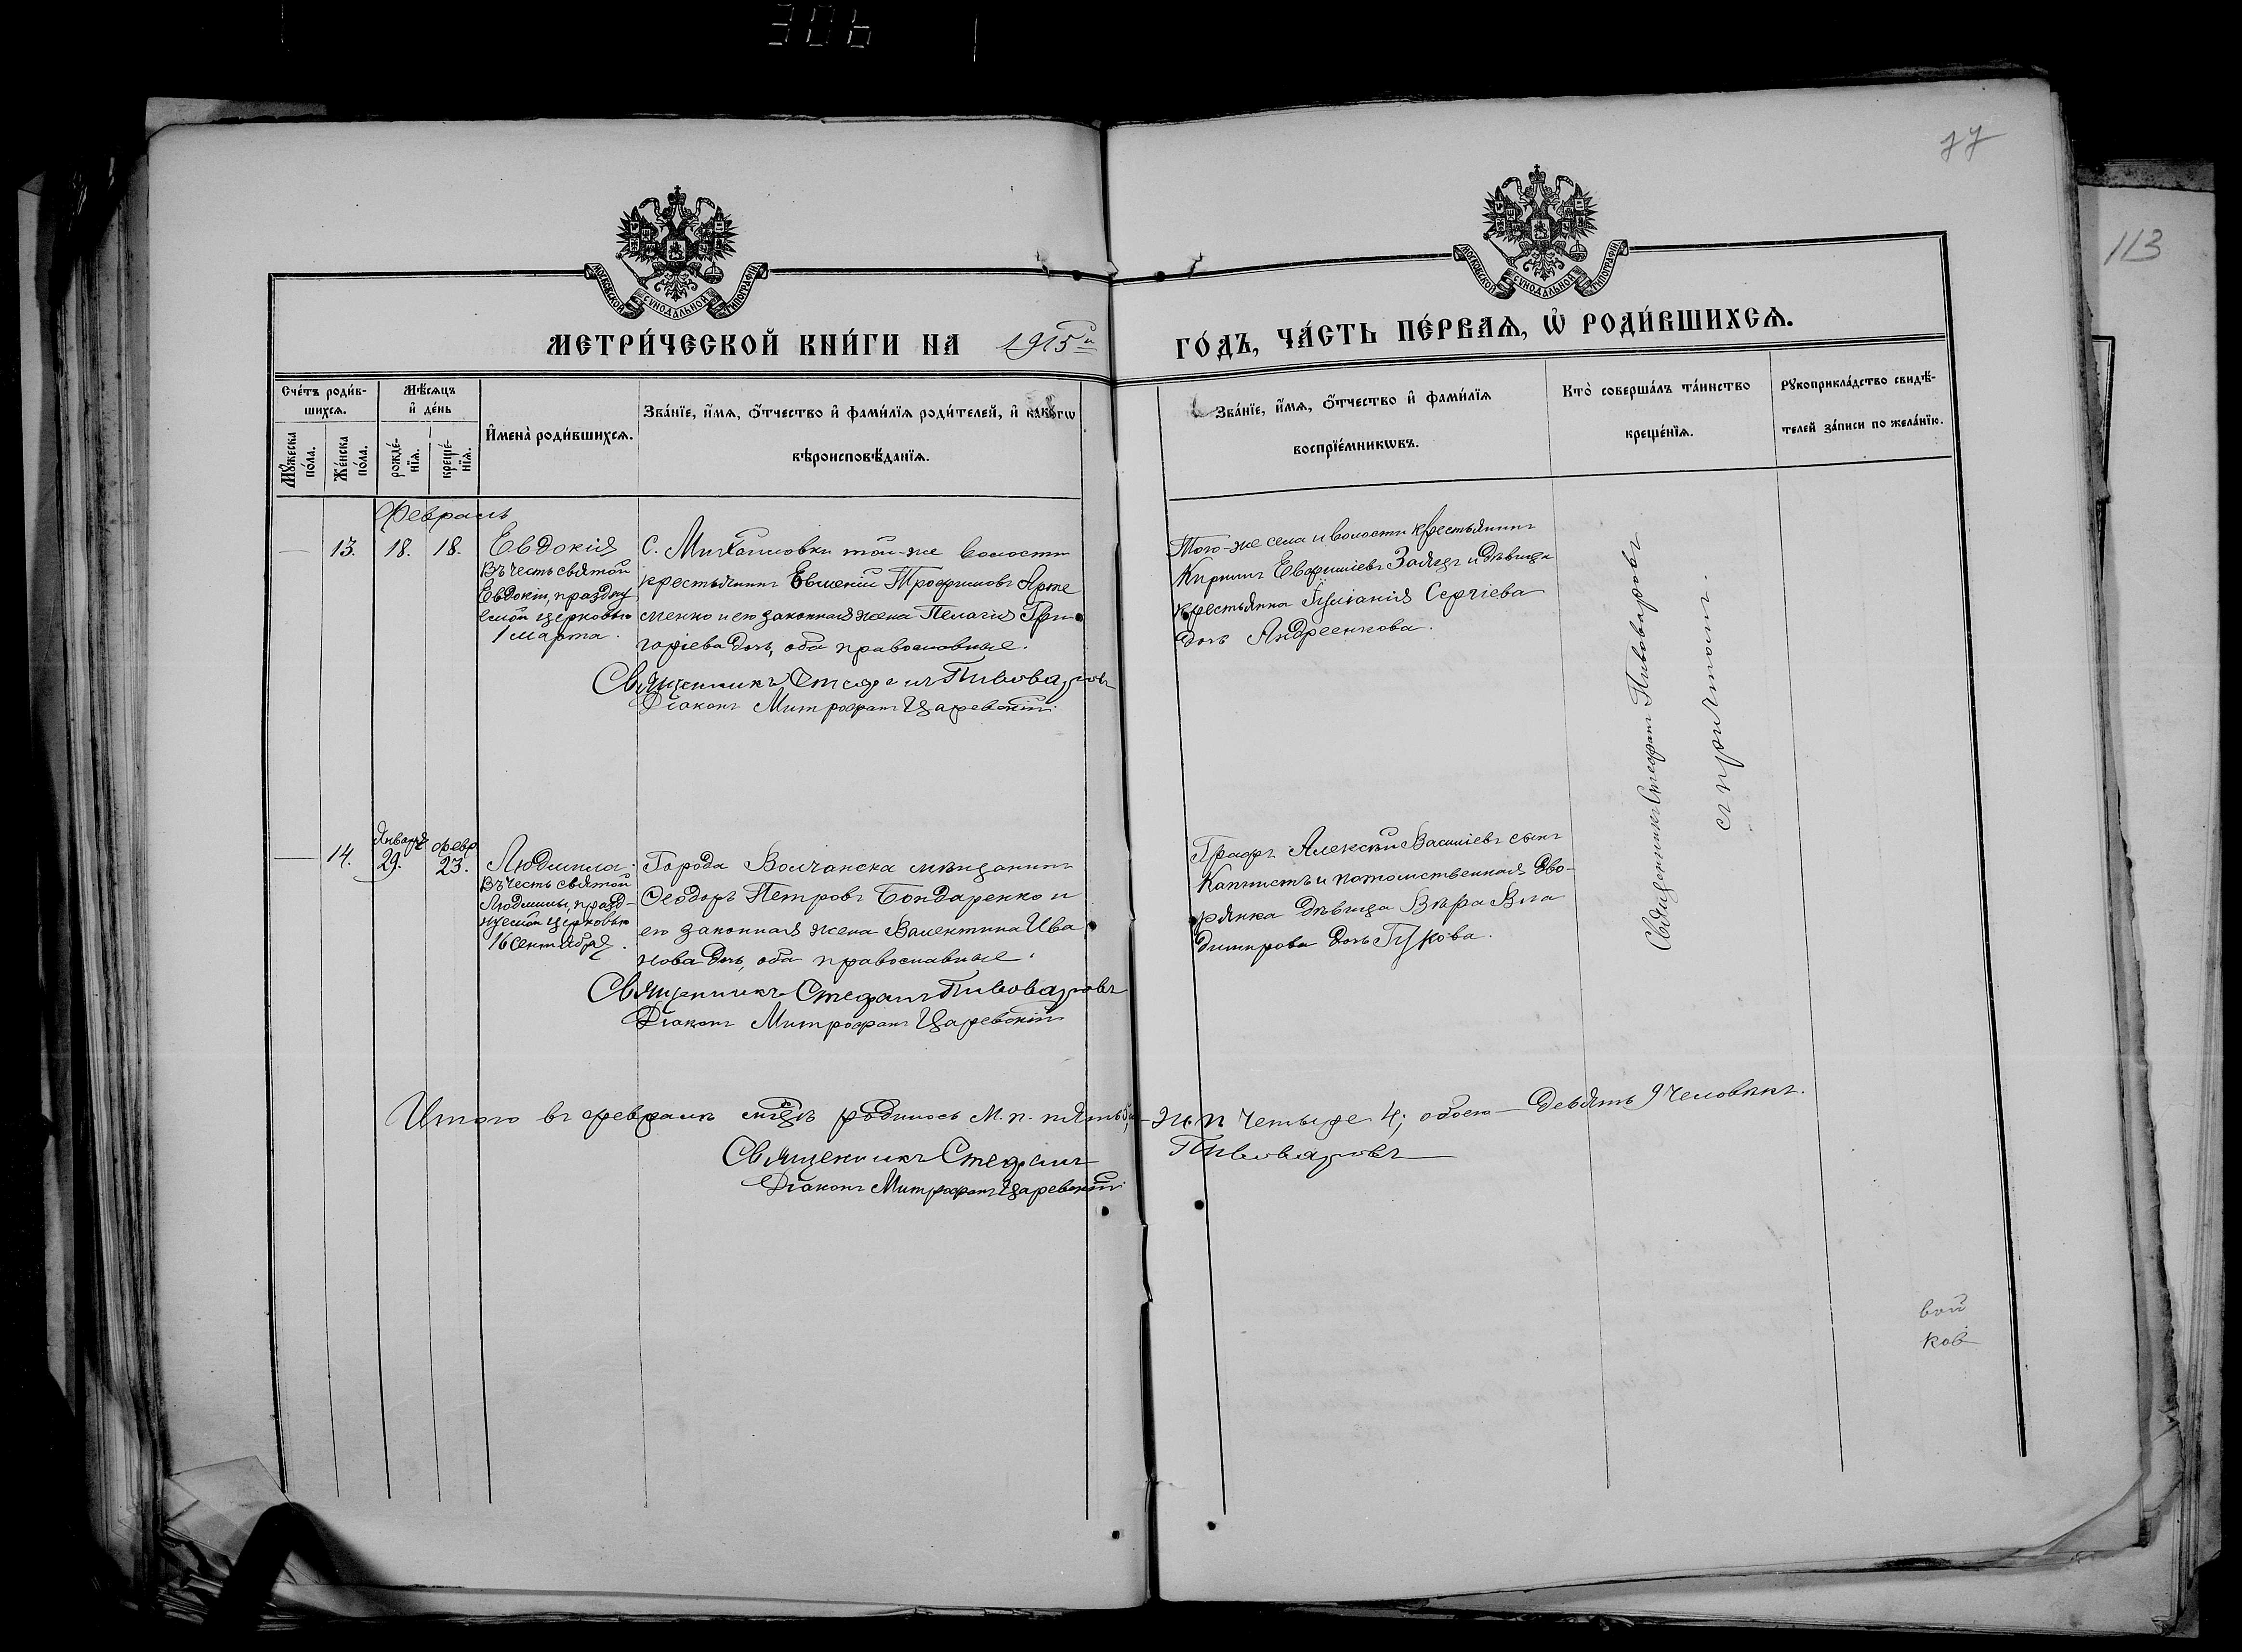 306
77
113
МОСКОВСКОЙ СѴНОДАЛЬНОЙ ТИПОГРАФІИ
МОСКОВСКОЙ СѴНОДАЛЬНОЙ ТИПОГРАФІИ
МЕТРИ́ЧЕСКОЙ КНИ́ГИ НА 1915й ГО́ДЪ, ЧА́СТЬ ПЕ́РВАѦ, Ѽ РОДИ́ВШИХСѦ.
Сче́тъ роди́в-
шихсѧ.
Мꙋ́жеска
по́ла.
Же́нска
по́ла.
Мѣ́сѧцъ
и҆ де́нь
рожде́-
нїѧ.
креще́-
нїѧ.
И҆мена̀ роди́вшихсѧ.
Зва́нїе, и҆́мѧ, ѻ҆́тчество и҆ фами́лїѧ роди́телей, и҆ како́гѡ
вѣроисповѣ́данїѧ.
Зва́нїе, и҆́мѧ, ѻ҆́тчество и҆ фами́лїѧ
воспрїе́мникѡвъ.
Кто̀ соверша́лъ та́инство
креще́нїѧ.
Рꙋкоприкла́дство свидѣ́-
телей за́писи по жела́нїю.
Февраль
— 13. 18. 18. Евдокія
Въ честь святой
Евдокіи, праздну
емой церковью
1 марта.
С. Михайловки той-же волости
крестьянинъ Евменій Трофимовъ Арте
менко и его законная жена Пелагія Гри
горіева дочь, оба православные.
Священникъ Стефанъ Пивоваровъ
Діаконъ Митрофанъ Царевскій
Того-же села и волости крестьянинъ
Кириллъ Евфиміевъ Заяцъ и дѣвица
крестьянка Іуліанія Сергіева
дочь Андреенкова.
Священникъ Стефанъ Пивоваровъ
съ причтомъ.
— 14. Января 29. февр 23. Людмила.
Въ честь святой
Людмилы, празд-
нуемой церковью
16 Сентября.
Города Волчанска мѣщанинъ
Ѳеодоръ Петровъ Бондаренко и
его законная жена Валентина Ива
нова дочь, оба православные.
Священникъ Стефанъ Пивоваровъ
Діаконъ Митрофанъ Царевскій
Графъ Алексѣй Васильевъ сынъ
Капнистъ и потомственная дво-
рянка дѣвица Вѣра Вла
димирова дочь Гужова.
Итого въ февралѣ мѣцѣ родилось М. п. пять 5, ж. п четыре 4; обоего — девять 9 человѣкъ.
Священникъ Стефанъ Пивоваровъ
Діаконъ Митрофанъ Царевскій
вой
ков